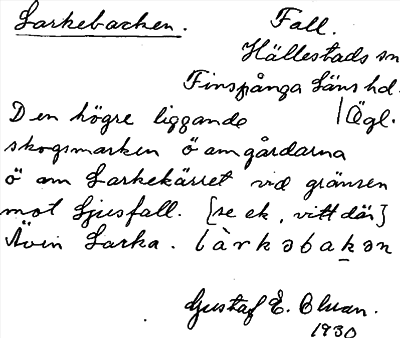 Larkebacken.
Fall.
Hällestads sn
Finspånga läns hd.
Den högre liggande | Ägl.
skogsmarken ö am gårdarna
ö am Larkekärret vid gränsen
mot Ljusfall. [se ek, vitt där]
Även Larka. làrkəbakən
Gustaf E.
1930